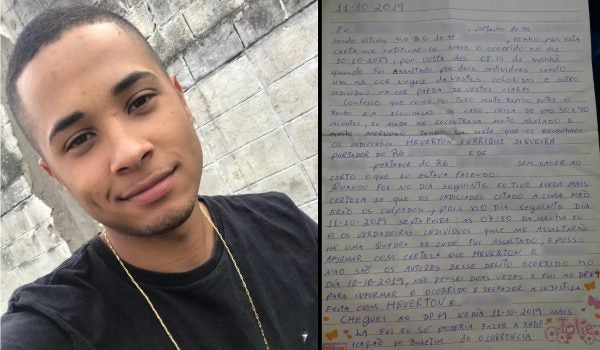 11-10-2019
EU, , PORTADOR DO RG
SENDO VITIMA NO B.O. DE Nº , VENHO POR ESTA
CARTA ME RETIFICAR-SE SOBRE O OCORRIDO NO DIA
10-10-2019, POR VOLTA DAS 08:15 DA MANHÃ
QUANDO FUI ASSALTADO POR DOIS INDIVIDUOS SENDO
UM NA COR NEGRA DE VESTES COLORIDAS E OUTRO
INDIVIDUO NA COR PARDA DE VESTES CLARAS.
CONFESSO QUE COMO FOI TUDO MUITO RÁPIDO ENTRE O
ROUBO E A ELUCIDAÇÃO DO CASO, COISA DE UNS 30 A 40
MINUTOS, EU AINDA ME ENCONTRAVA MUITO ABALADO E
MUITO NERVOSO QUE OS RECONHECI
OS INDICIADOS HEVERTON ENRRIQUE SIQUEIRA
PORTADOR DO RG E DE
, PORTADOR DO RG SEM SABER AO
CERTO O QUE EU ESTAVA FAZENDO.
QUANDO FOI NO DIA SEGUINTE EU TIVE AINDA MAIS
CERTEZA DE QUE OS INDICIADOS CITADO A CIMA NÃO
ERÃO OS CULPADOS, POIS NO DIA SEGUINTE DIA
11-10-2019 SEXTA FEIRA AS 07:50 DA MANHÃ EU
VI OS VERDADEIROS INDIVIDUOS QUE ME ASSALTARÃO
HÁ UMA QUADRA DE ONDE FUI ASSALTADO, E POSSO
AFIRMAR COM CERTEZA QUE HEVERTON E
NÃO SÃO OS AUTORES DESSE DELITO OCORRIDO NO
DIA 10-10-2019, NÃO PENSEI DUAS VEZES E FUI AO DP 69
PARA INFORMAR O OCORRIDO E DESFAZER A INJUSTIÇA
FEITA COM HEVERTON E
CHEGUEI AO DP 69 NO DIA 11-10-2019 MAIS
LÁ FUI EU SÓ PODERIA FAZER A
DO BOLETIM DE OCORRÊNCIA
Jolie